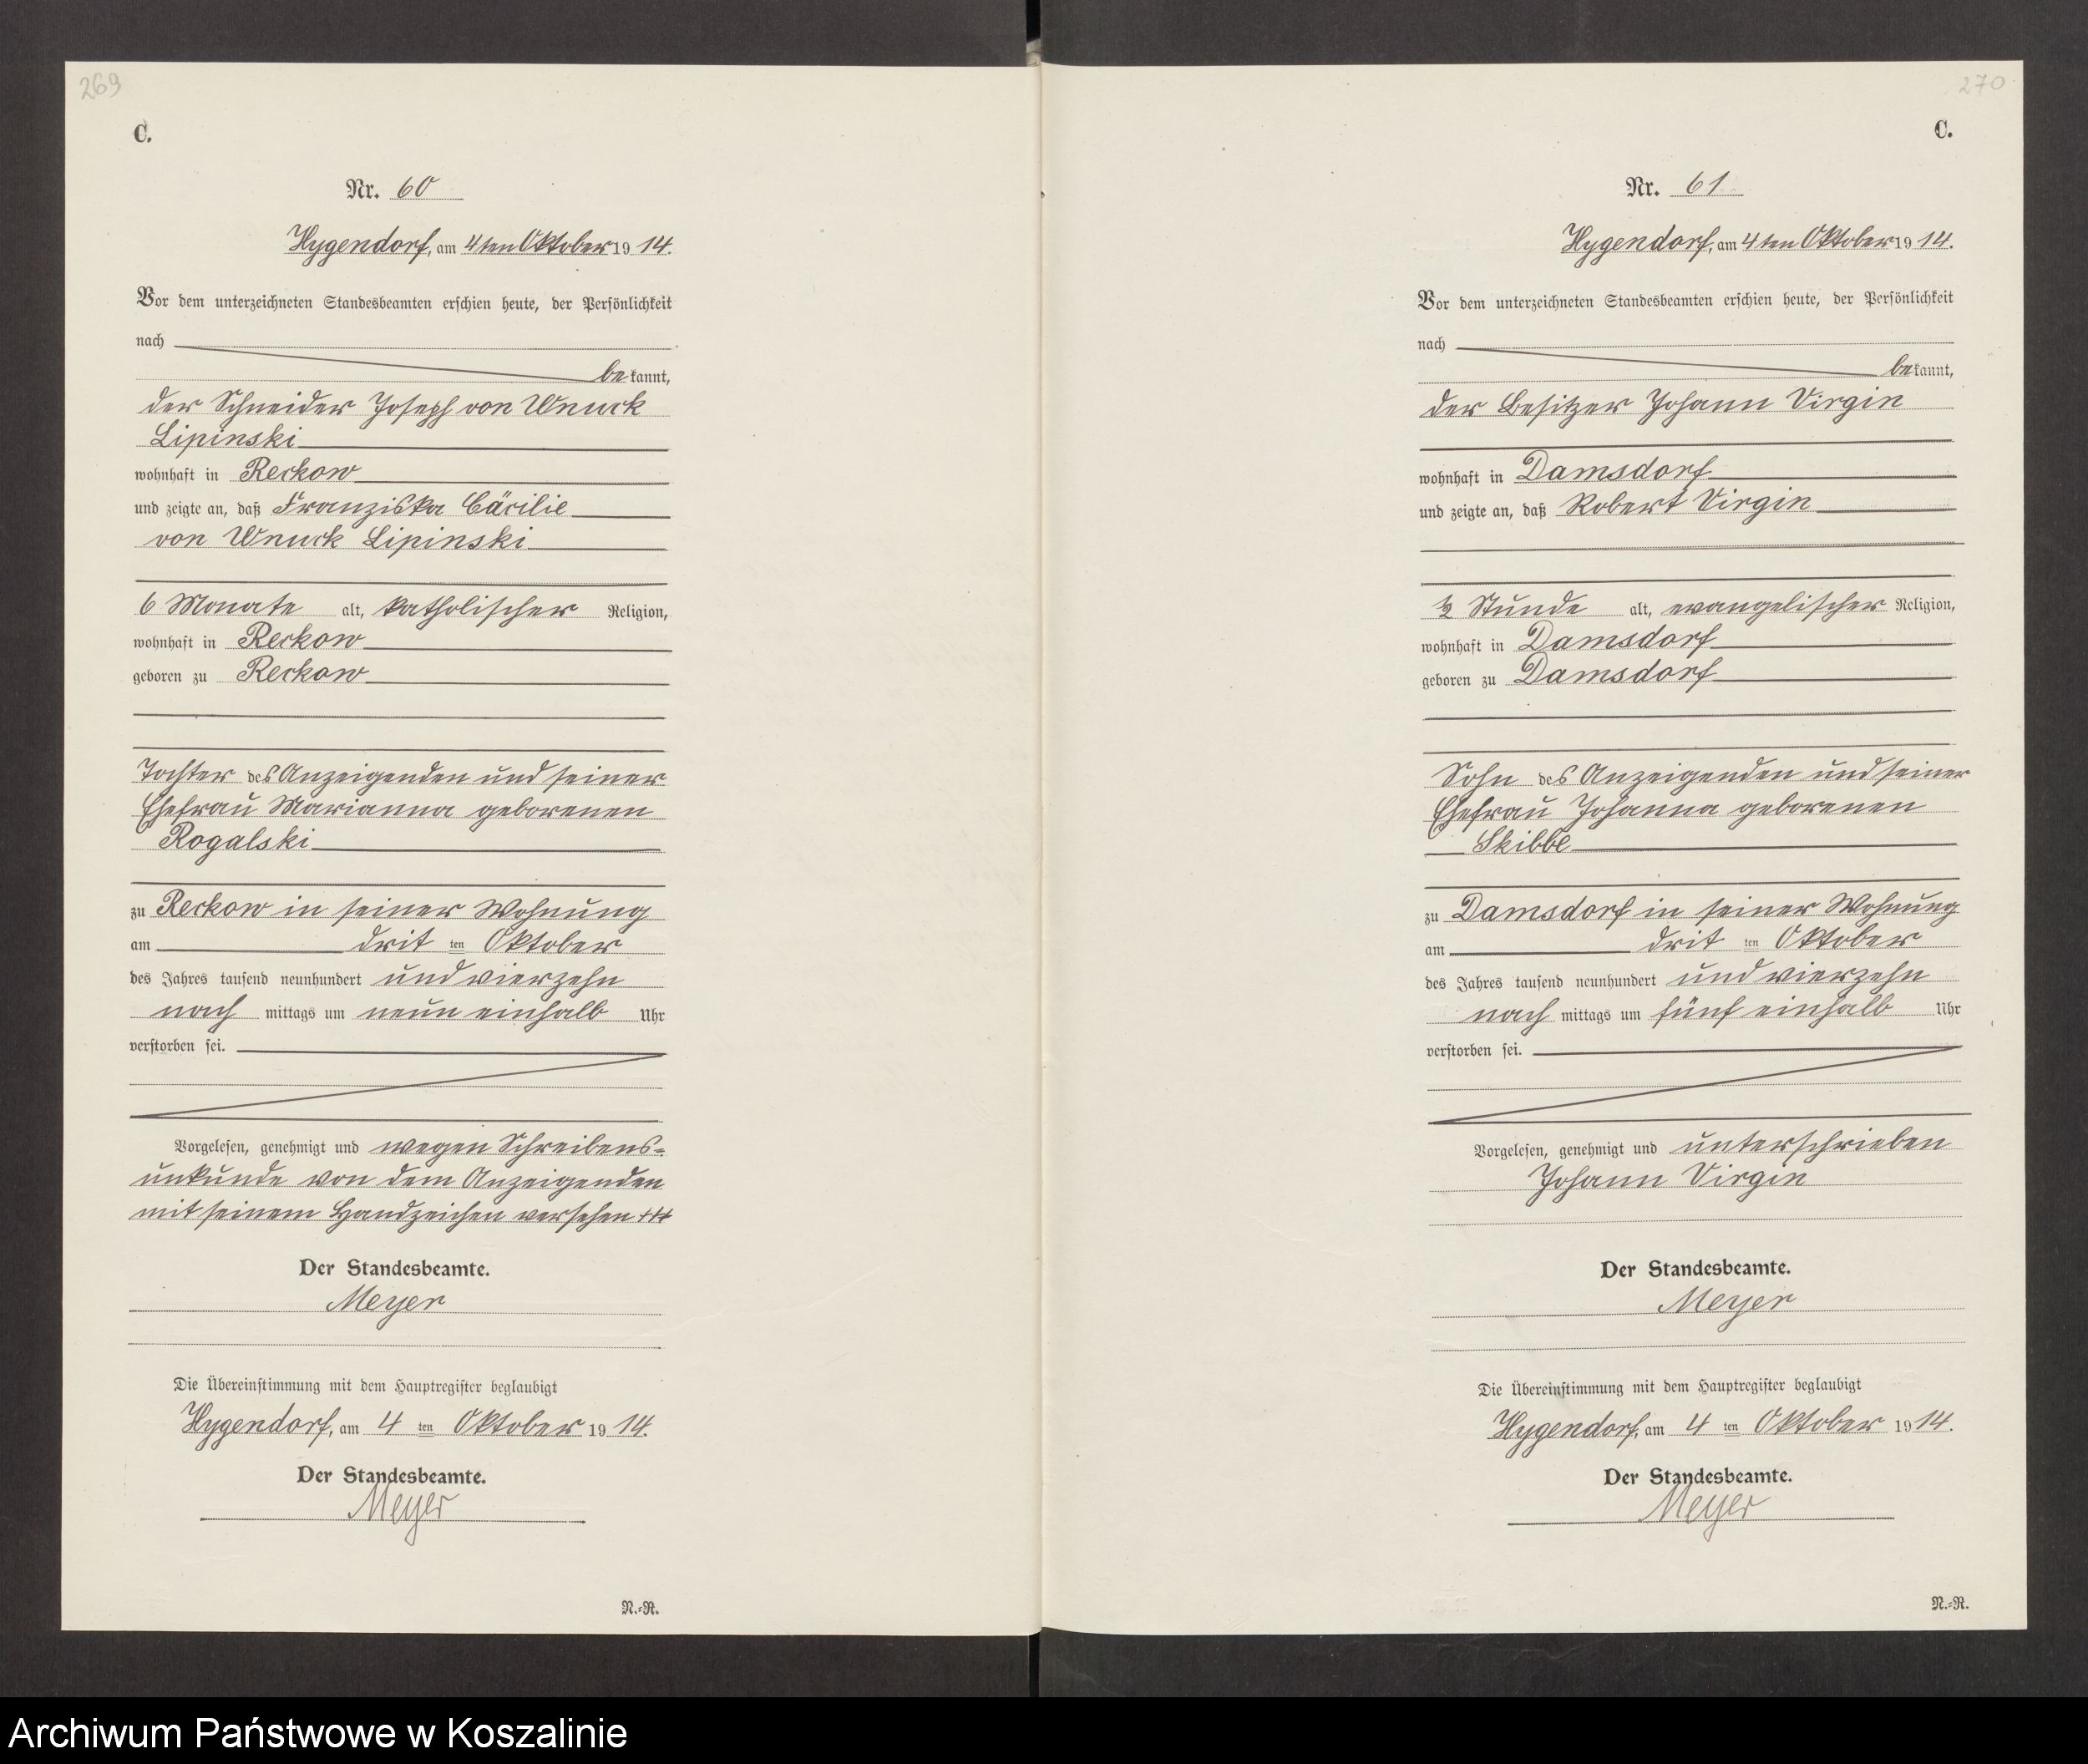 269
C.
Nr. 60
Hygendorf, am 4ten Oktober 1914.
Vor dem unterzeichneten Standesbeamten erschien heute, der Persönlichkeit
nach
bekannt,
der Schneider Joseph von Wnuck
Lipinski
wohnhaft in Reckow
und zeigte an, daß Franziska Cäcilie
von Wnuck Lipinski
6 Monate alt, katholischer Religion,
wohnhaft in Reckow
geboren zu Reckow
Tochter des Anzeigenden und seiner
Ehefrau Marianna geborenen
Rogalski
zu Reckow in seiner Wohnung
am drit ten Oktober
des Jahres tausend neunhundert und vierzehn
nach mittags um neun einhalb Uhr
verstorben sei.
Vorgelesen, genehmigt und wegen Schreibens-
unkunde von dem Anzeigenden
mit seinem Handzeichen versehen +++
Der Standesbeamte.
Meyer
Die Übereinstimmung mit dem Hauptregister beglaubigt
Hygendorf, am 4 ten Oktober 1914.
Der Standesbeamte.
Meyer
N.-R.
270
C.
Nr. 61
Hygendorf, am 4ten Oktober 1914.
Vor dem unterzeichneten Standesbeamten erschien heute, der Persönlichkeit
nach
bekannt,
der Besitzer Johann Virgin
wohnhaft in Damsdorf
und zeigte an, daß Robert Virgin
½ Stunde alt, evangelischer Religion,
wohnhaft in Damsdorf
geboren zu Damsdorf
Sohn des Anzeigenden und seiner
Ehefrau Johanna geborenen
Skibbe
zu Damsdorf in seiner Wohnung
am drit ten Oktober
des Jahres tausend neunhundert und vierzehn
nach mittags um fünf einhalb Uhr
verstorben sei.
Vorgelesen, genehmigt und unterschrieben
Johann Virgin
Der Standesbeamte.
Meyer
Die Übereinstimmung mit dem Hauptregister beglaubigt
Hygendorf, am 4 ten Oktober 1914.
Der Standesbeamte.
Meyer
N.-R.
Archiwum Państwowe w Koszalinie